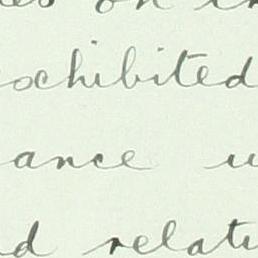 on
ochibited
ance
d relati